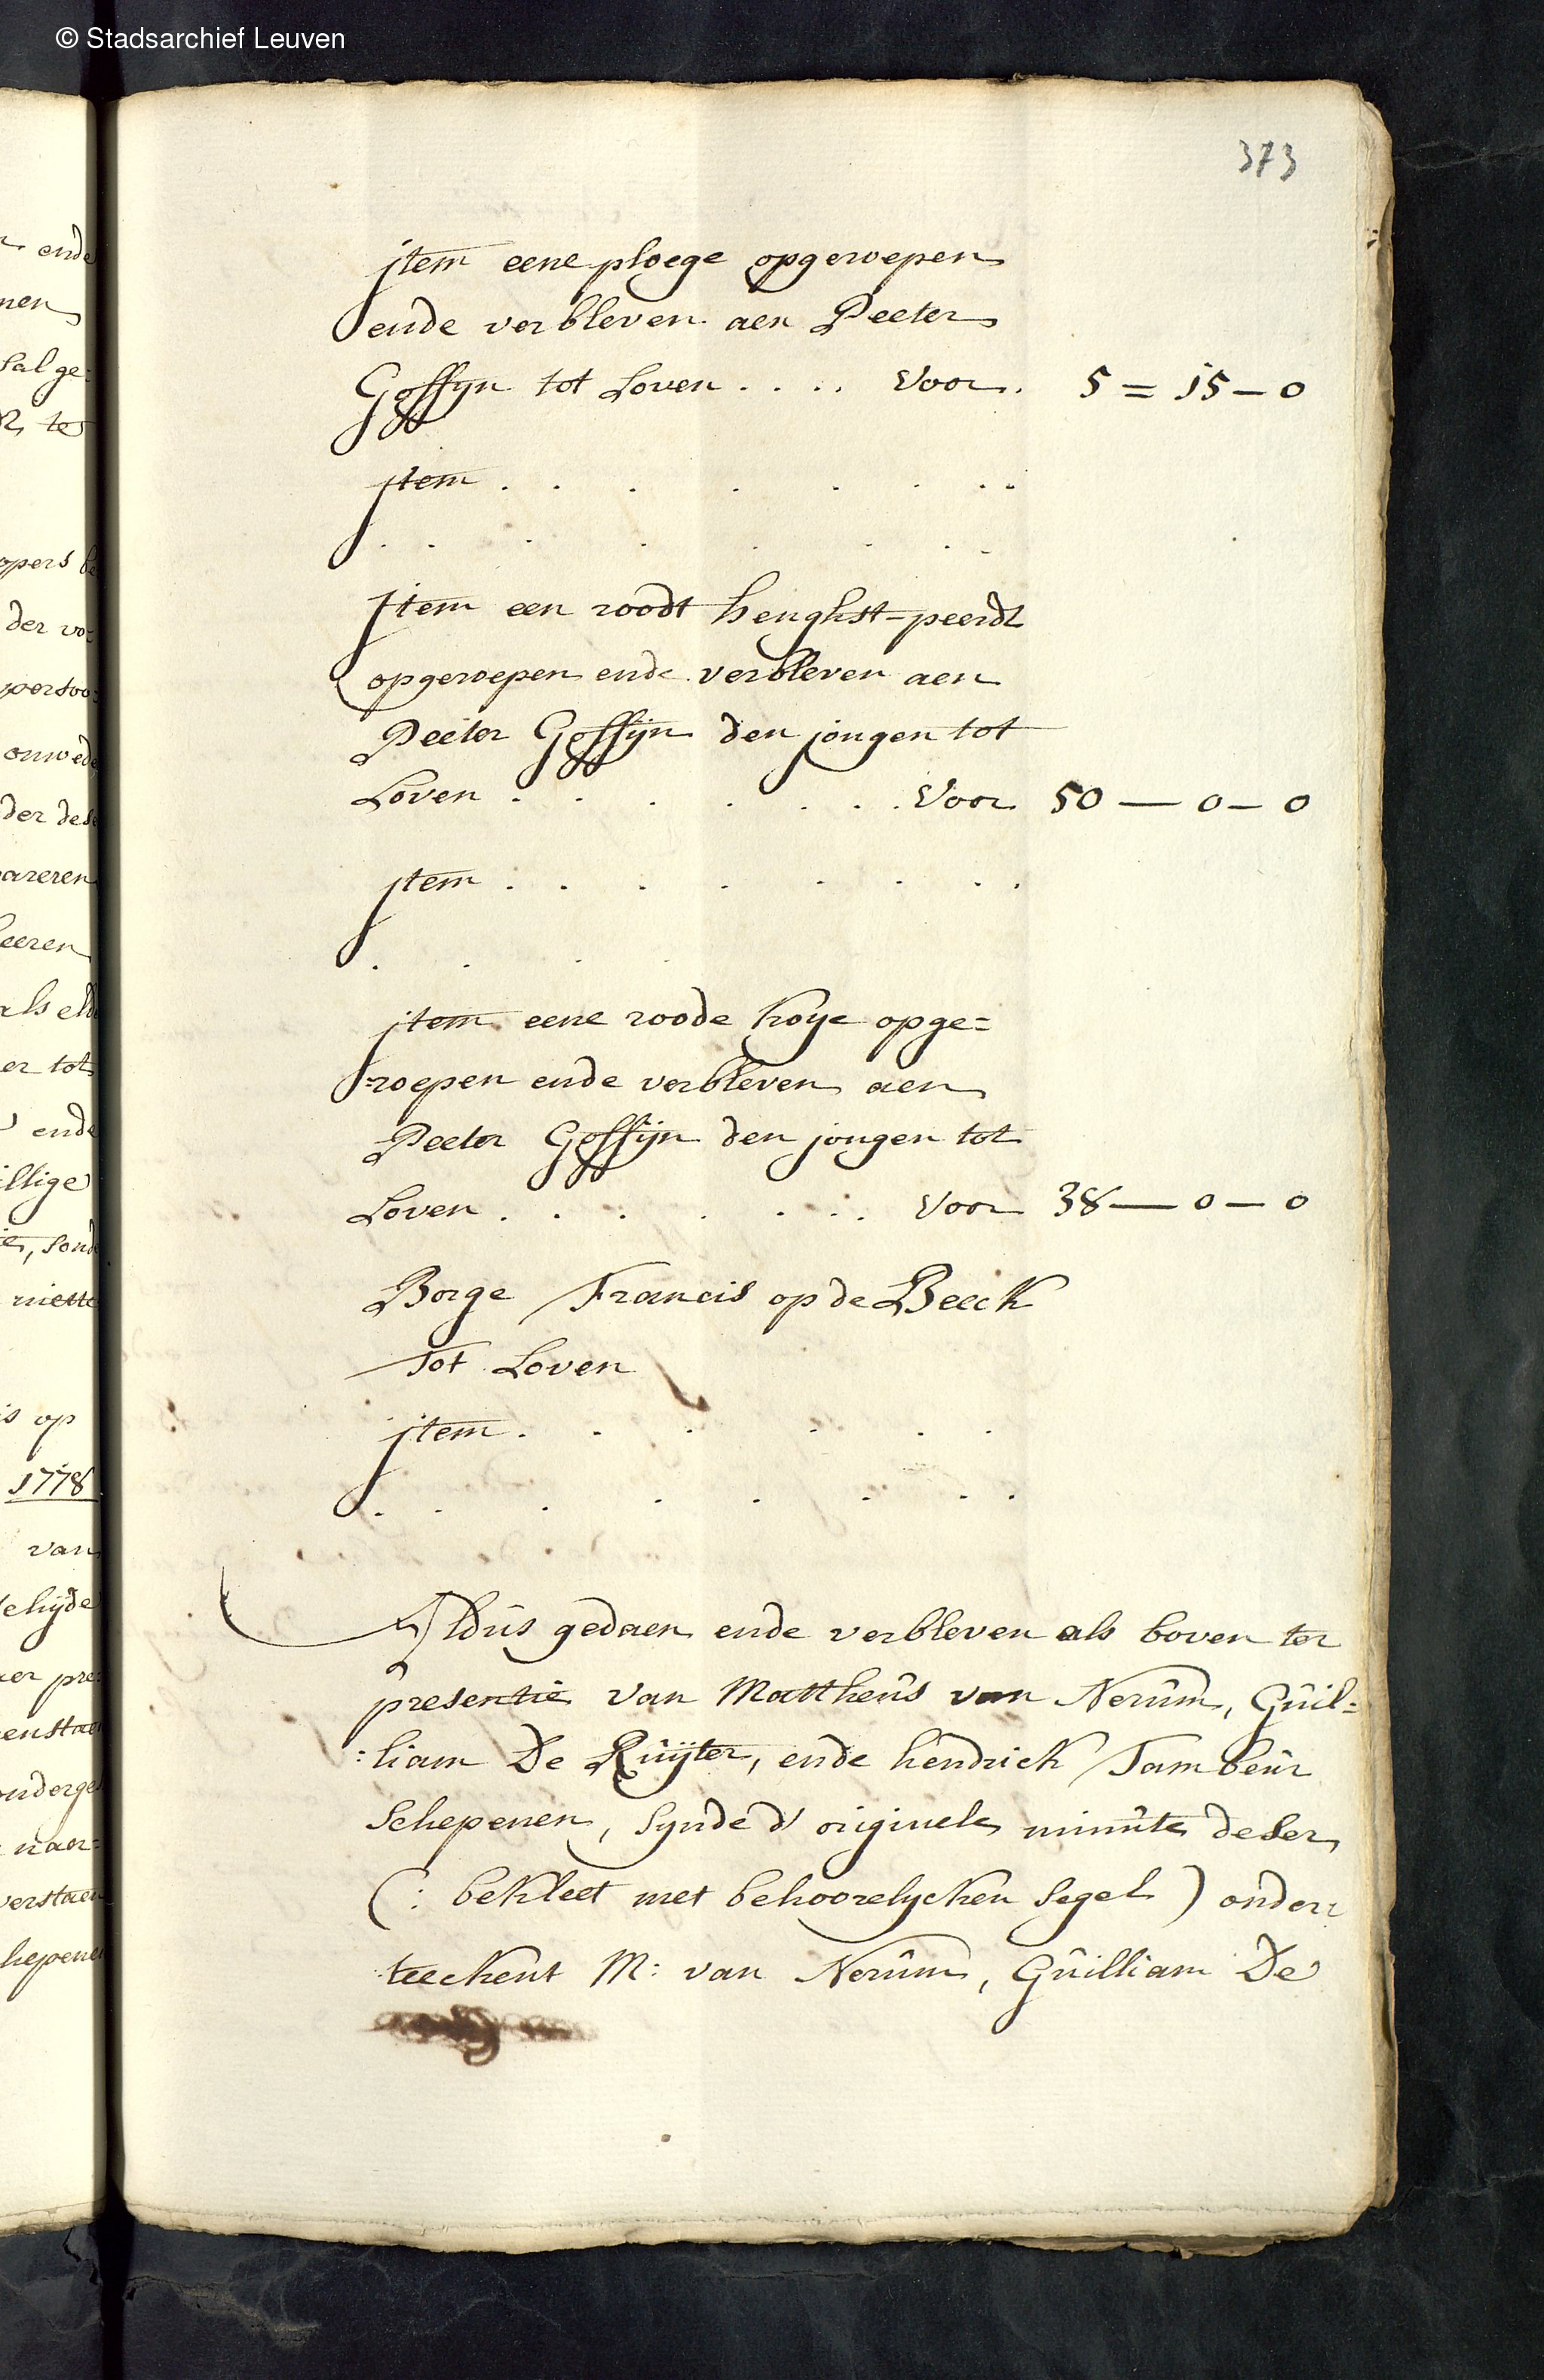 © Stadsarchief Leuven
373
jtem eene ploege opgeroepen
ende verbleven aen Peeter
Goffijn tot Loven . . . . Voor. 5 = 15 – 0
jtem . . . . . . . .
. . . . . . . .
Jtem een roodt henghst-peerdt
opgeroepen ende verbleven aen
Peeter Goffijn den jongen tot
Loven . . . . . . . Voor 50 — 0 – 0
jtem . . . . . . . .
. . . .
jtem eene roode koye opge=
=roepen ende verbleven aen
Peeter Goffijn den jongen tot
Loven . . . . . . . Voor 38 — 0 – 0
Borge Francis op de Beeck
Tot Loven
jtem . . . . . .
. . . . . . . .
Aldus gedaen ende verbleven als boven ter
presentie van Mattheûs van Nerûm, Gûil=
:liam De Rûijter, ende hendrick Tambeûr
Schepenen, synde d'originele minûte deser
(: bekleet met behoorelycken segel ) onder:
teeckent M: van Nerûm, Gûilliam De
ende
nen
sal ge:
te
opers be
der vo:
persoo:
onwed
der des
areren
heeren
als el
er tot
ende
illige
, sond
niette
is op
1778
van
er pre:
enstae
onderge
naer:
verstaen
hepene